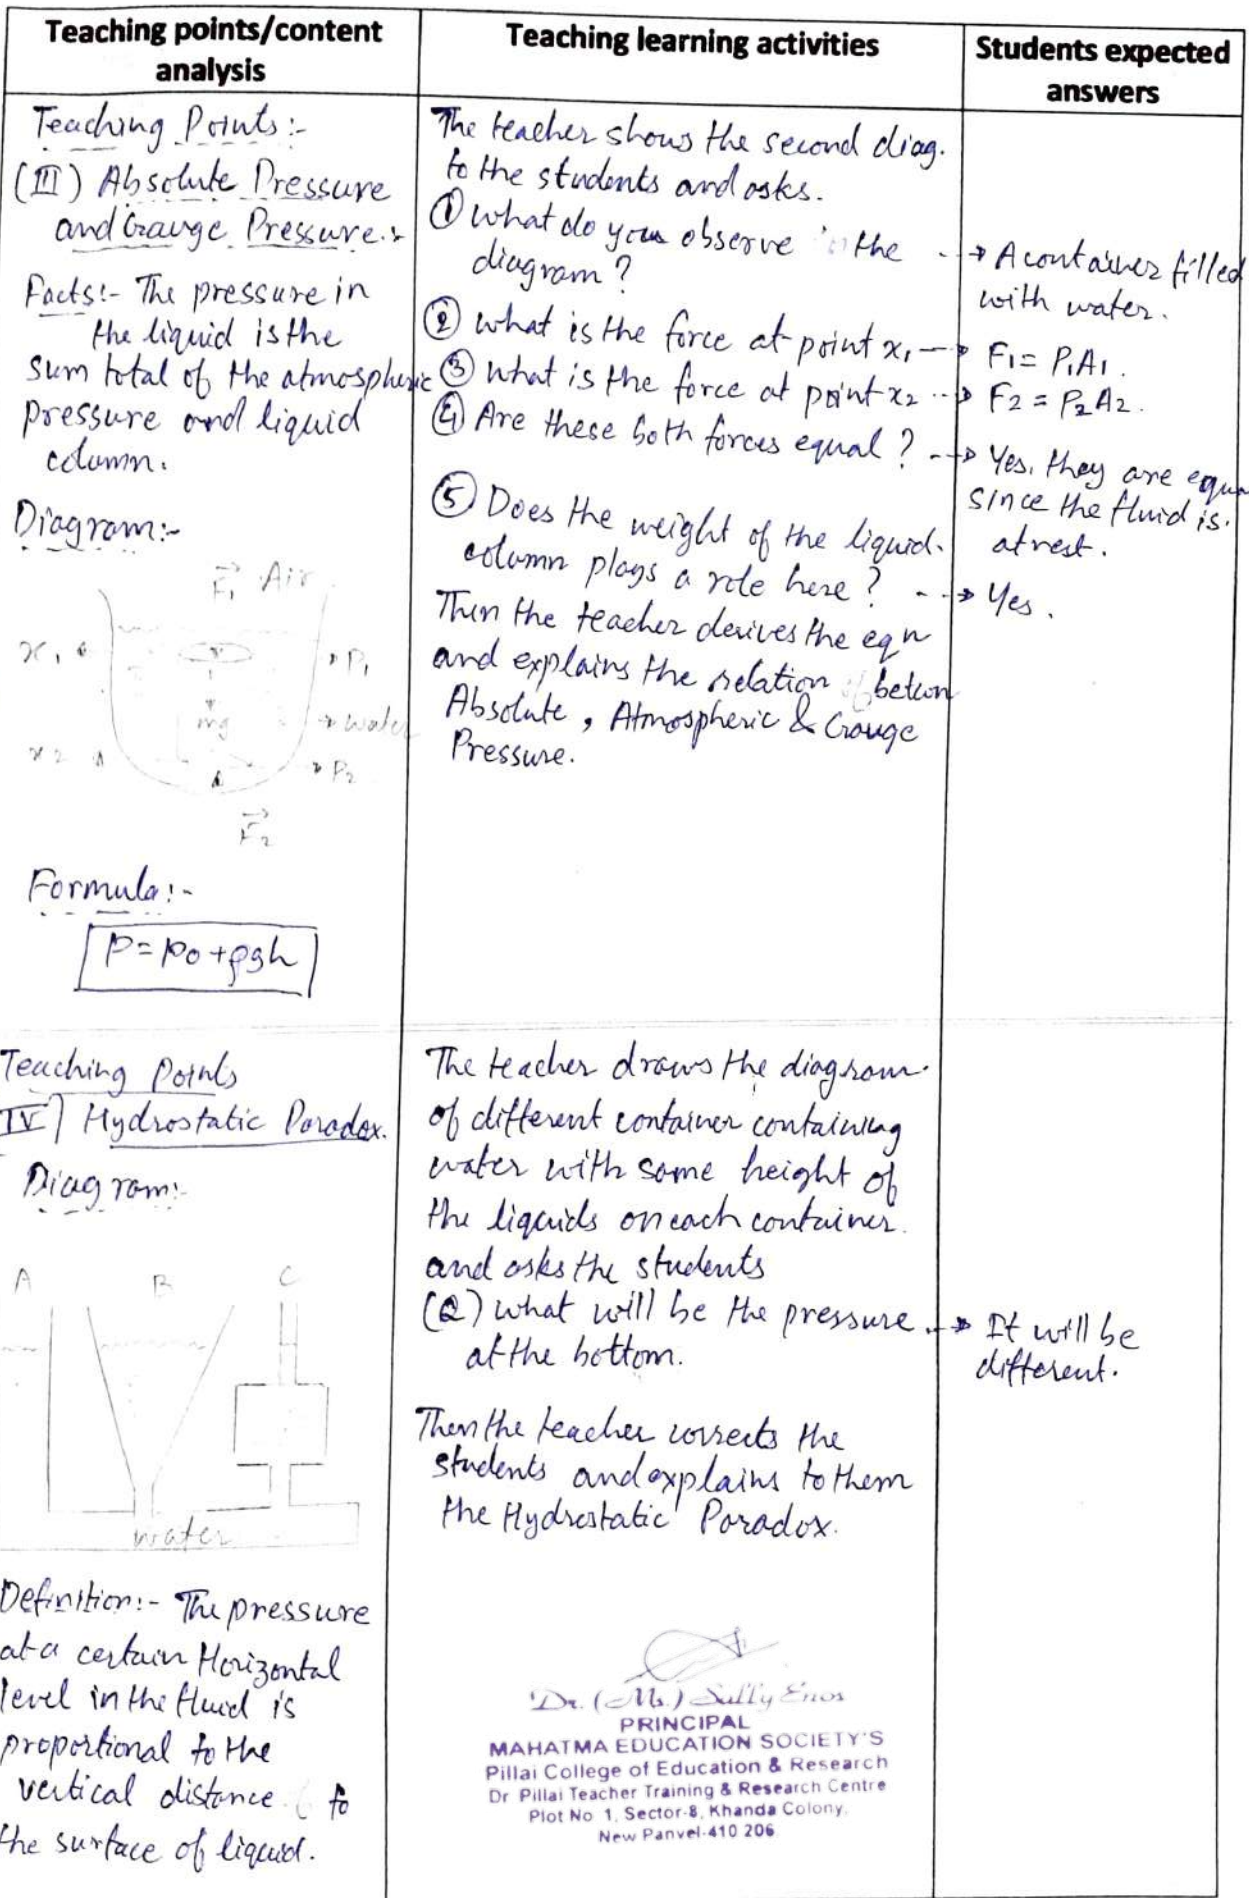 Teaching points/content
analysis
Teaching learning activities
Students expected
answers
Teaching Points:-
(III) Absolute Pressure
and Gauge Pressure:-
Facts:- The pressure in
the liquid is the
sum total of the atmospheric
pressure and liquid
column.
Diagram:-
F₁ Air
x₁
P₁
mg
water
x₂
P₂
F₂
Formula:-
P = P₀ + ρgh
The teacher shows the second diag.
to the students and asks.
① What do you observe in the
diagram?
② What is the force at point x₁
③ What is the force at point x₂
④ Are these both forces equal?
⑤ Does the weight of the liquid
column plays a role here?
Then the teacher derives the eqn
and explains the relation betwn
Absolute, Atmospheric & Gauge
Pressure.
→ A container filled
with water.
→ F₁ = P₁A₁.
→ F₂ = P₂A₂.
→ Yes, they are equa
since the fluid is
at rest.
→ Yes.
Teaching Points
IV) Hydrostatic Paradox.
Diagram:-
A B C
water
Definition:- The pressure
at a certain Horizontal
level in the fluid is
proportional to the
vertical distance to
the surface of liquid.
The teacher draws the diagram
of different container containing
water with same height of
the liquids on each container
and asks the students
(Q) What will be the pressure
at the bottom.
Then the teacher corrects the
students and explains to them
the Hydrostatic Paradox.
→ It will be
different.
Dr. (Ms.) Sally Enos
PRINCIPAL
MAHATMA EDUCATION SOCIETY'S
Pillai College of Education & Research
Dr Pillai Teacher Training & Research Centre
Plot No 1, Sector-8, Khanda Colony,
New Panvel-410 206